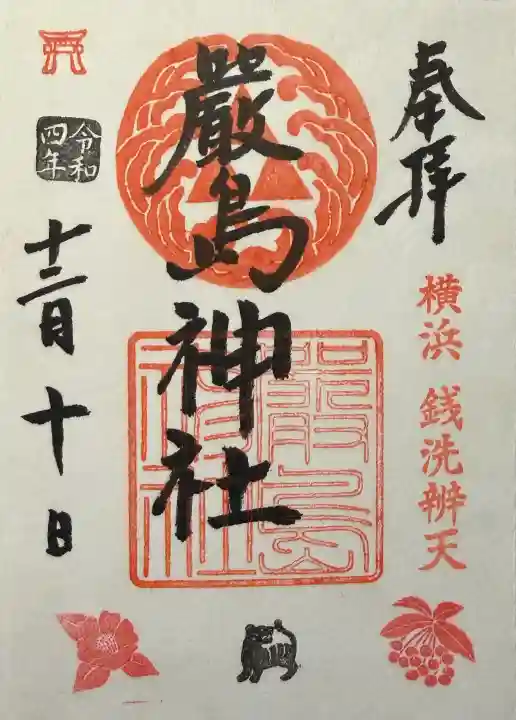 奉拝
横浜 銭洗辨天
嚴島神社
嚴島
神社
令和
四年
十二月十日